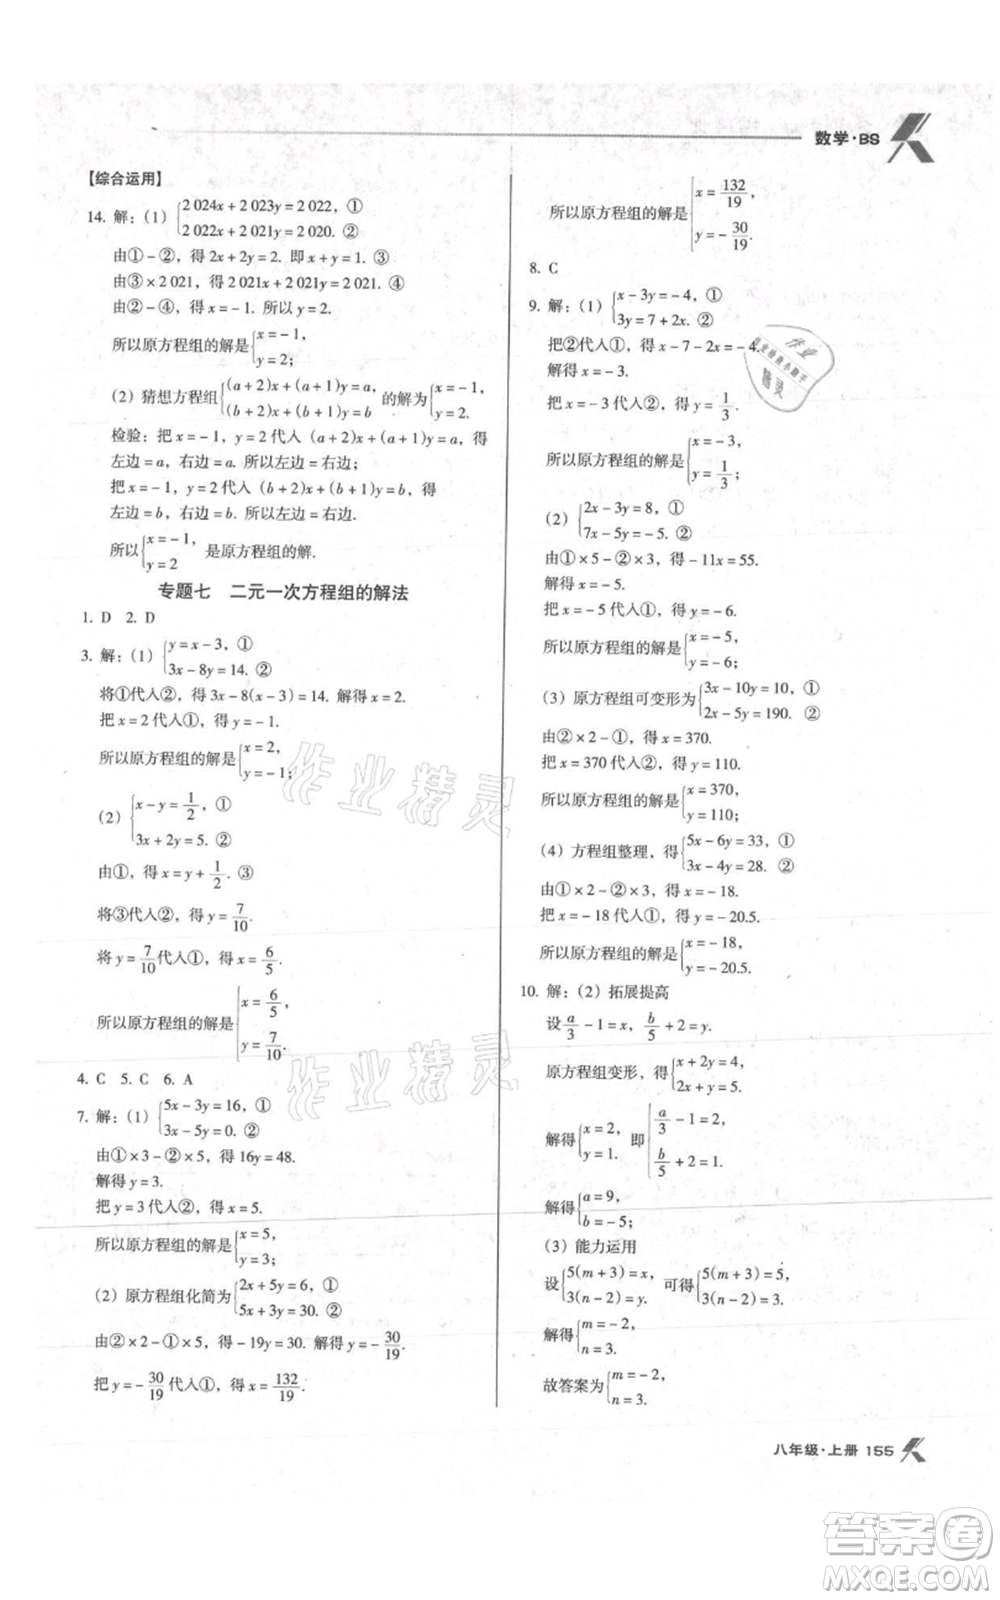 数学·BS
【综合运用】
14. 解：(1) {2 024x+2 023y=2 022，①
2 022x+2 021y=2 020. ②
由①-②，得 2x+2y=2. 即 x+y=1. ③
由③×2 021，得 2 021x+2 021y=2 021. ④
由②-④，得 x=-1. 所以 y=2.
所以原方程组的解是{x=-1，
y=2；
(2) 猜想方程组{(a+2)x+(a+1)y=a，
(b+2)x+(b+1)y=b 的解为{x=-1，
y=2.
检验：把 x=-1，y=2代入 (a+2)x+(a+1)y=a，得
左边=a，右边=a. 所以左边=右边；
把 x=-1，y=2代入 (b+2)x+(b+1)y=b，得
左边=b，右边=b. 所以左边=右边.
所以{x=-1，
y=2 是原方程组的解.
专题七 二元一次方程组的解法
1. D 2. D
3. 解：(1) {y=x-3，①
3x-8y=14. ②
将①代入②，得 3x-8(x-3)=14. 解得 x=2.
把 x=2代入①，得 y=-1.
所以原方程组的解是{x=2，
y=-1；
(2) {x-y=1/2，①
3x+2y=5. ②
由①，得 x=y+1/2. ③
将③代入②，得 y=7/10.
将 y=7/10代入①，得 x=6/5.
所以原方程组的解是{x=6/5，
y=7/10.
4. C 5. C 6. A
7. 解：(1) {5x-3y=16，①
3x-5y=0. ②
由①×3-②×5，得 16y=48.
解得 y=3.
把 y=3代入②，得 x=5.
所以原方程组的解是{x=5，
y=3；
(2) 原方程组化简为{2x+5y=6，①
5x+3y=30. ②
由②×2-①×5，得-19y=30. 解得 y=-30/19.
把 y=-30/19代入①，得 x=132/19.
所以原方程组的解是{x=132/19，
y=-30/19.
8. C
9. 解：(1) {x-3y=-4，①
3y=7+2x. ②
把②代入①，得 x-7-2x=-4.
解得 x=-3.
把 x=-3代入②，得 y=1/3.
所以原方程组的解是{x=-3，
y=1/3；
(2) {2x-3y=8，①
7x-5y=-5. ②
由①×5-②×3，得-11x=55.
解得 x=-5.
把 x=-5代入①，得 y=-6.
所以原方程组的解是{x=-5，
y=-6；
(3) 原方程组可变形为{3x-10y=10，①
2x-5y=190. ②
由②×2-①，得 x=370.
把 x=370代入②，得 y=110.
所以原方程组的解是{x=370，
y=110；
(4) 方程组整理，得{5x-6y=33，①
3x-4y=28. ②
由①×2-②×3，得 x=-18.
把 x=-18代入①，得 y=-20.5.
所以原方程组的解是{x=-18，
y=-20.5.
10. 解：(2) 拓展提高
设a/3-1=x，b/5+2=y.
原方程组变形，得{x+2y=4，
2x+y=5.
解得{x=2，
y=1. 即{a/3-1=2，
b/5+2=1.
解得{a=9，
b=-5；
(3) 能力运用
设{5(m+3)=x，
3(n-2)=y. 可得{5(m+3)=5，
3(n-2)=3.
解得{m=-2，
n=3.
故答案为{m=-2，
n=3.
八年级·上册 155
作业精灵
作业精灵
作业
精灵
答案圈
MXQE.COM